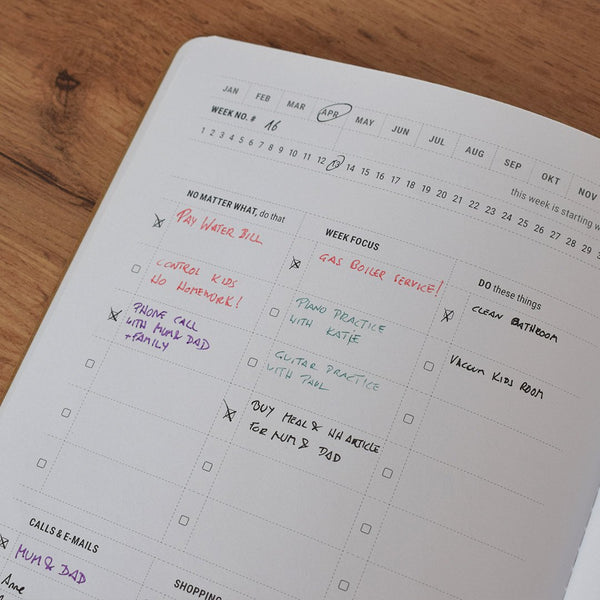 JAN FEB MAR APR MAY JUN JUL AUG SEP OKT NOV
WEEK NO. # 16
1 2 3 4 5 6 7 8 9 10 11 12 13 14 15 16 17 18 19 20 21 22 23 24 25 26 27 28 29
this week is starting
NO MATTER WHAT, do that
PAY WATER BILL
CONTROL KIDS
NO HOMEWORK!
PHONE CALL
WITH MUM & DAD
+FAMILY
WEEK FOCUS
GAS BOILER SERVICE!
PIANO PRACTICE
WITH KATIE
GUITAR PRACTICE
WITH PAUL
BUY MEAL & HH ARTICLE
FOR MUM & DAD
DO these things
CLEAN BATHROOM
VACCUM KIDS ROOM
CALLS & E-MAILS
MUM & DAD
Anne
SHOPPING